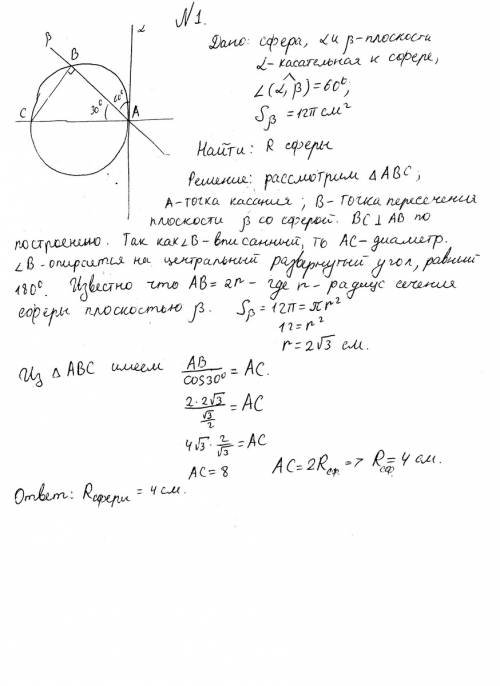 №1.
Дано: сфера, α и β-плоскости
α-касательная к сфере,
∠(α,^β)=60°,
Sβ=12π см²
Найти: R сферы
Решение: рассмотрим △ABC;
A-точка касания; B-точка пересечения
плоскости β со сферой. BC⊥AB по
построению. Так как ∠B-вписанный, то AC-диаметр.
∠B-опирается на центральный развернутый угол, равный
180°. Известно что AB=2r - где r-радиус сечения
сферы плоскостью β. Sβ=12π=πr²
12=r²
r=2√3 см.
Из △ABC имеем AB/cos30°=AC.
2·2√3/(√3/2)=AC
4√3·2/√3=AC
AC=8 AC=2Rсф.=> Rсф=4 см.
Ответ: Rсферы=4см.
β
α
B
60°
30°
C
A